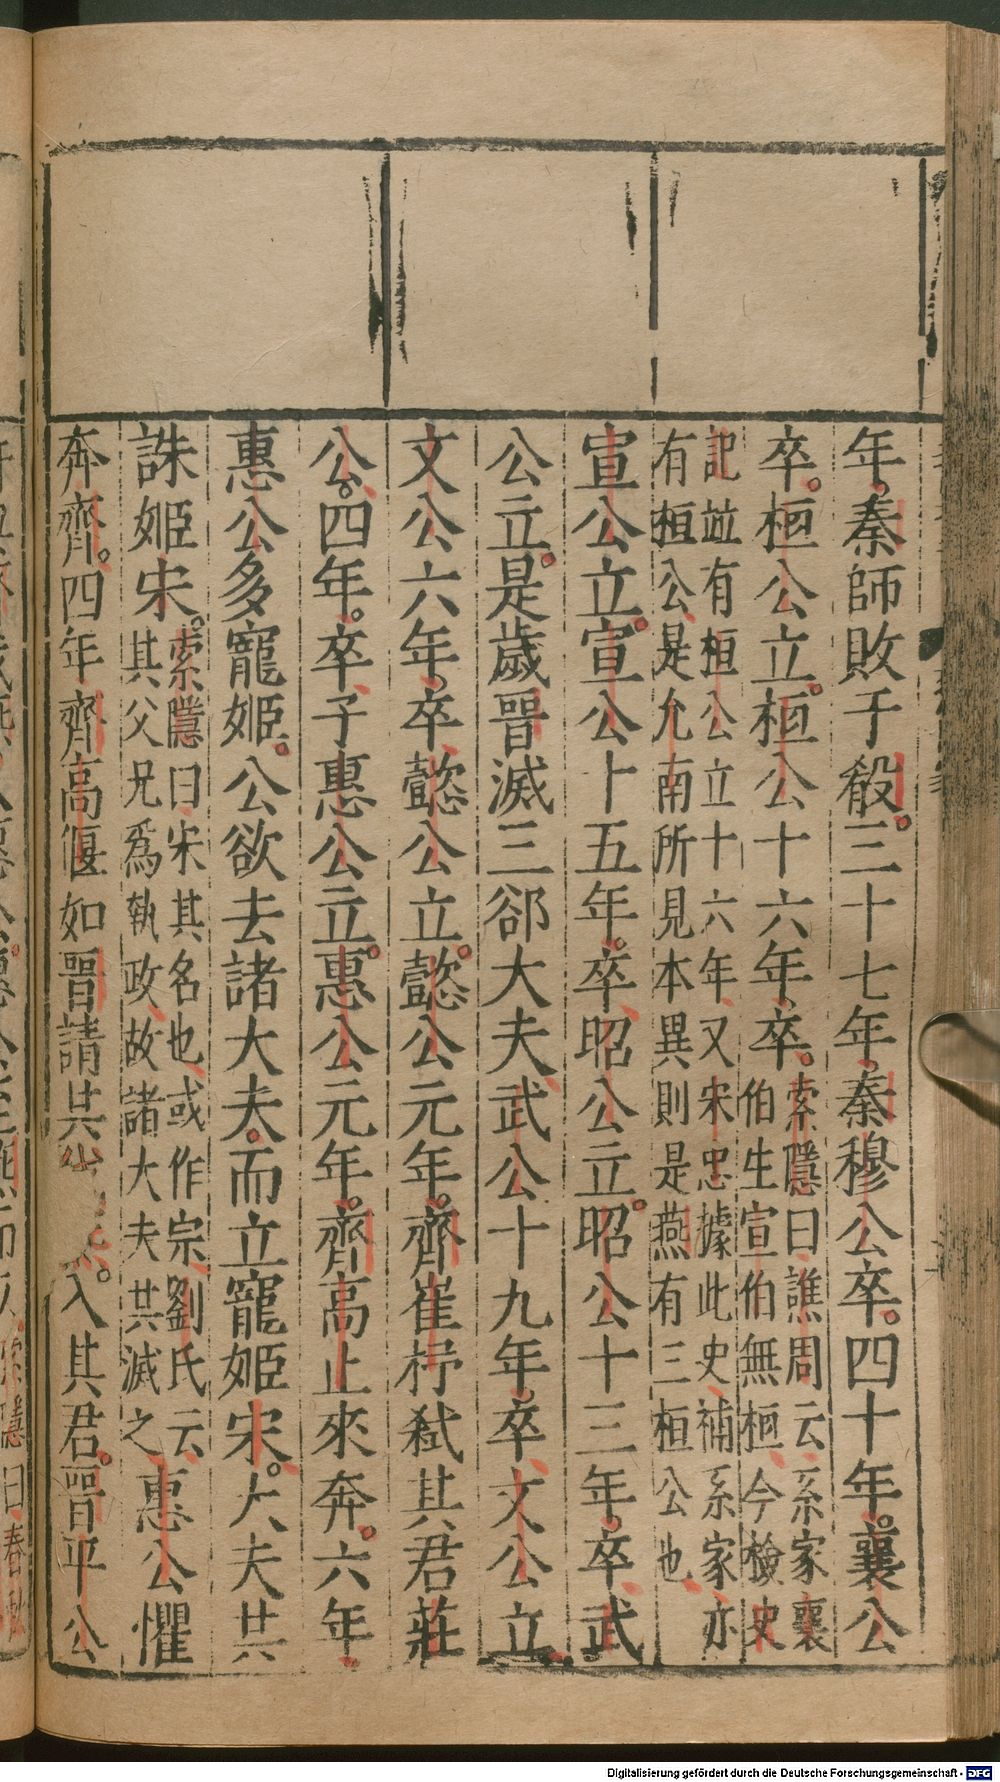 年。秦師敗于殽。三十七年。秦穆公卒。四十年。襄公
卒。桓公立。桓公十六年。卒。索隱曰、譙周云、系家襄
伯生宣伯、無桓、今檢史
記竝有桓公立十六年、又宋忠據此史、補系家、亦
有桓公、是允南所見本異、則是燕有三桓公也、
宣公立。宣公十五年。卒、昭公立。昭公十三年。卒、武
公立。是歲晉滅三郤大夫、武公十九年。卒、文公立、
文公六年。卒、懿公立。懿公元年。齊崔杼弑其君莊
公。四年。卒、子惠公立。惠公元年。齊高止來奔。六年、
惠公多寵姬。公欲去諸大夫。而立寵姬宋。大夫共
誅姬宋。索隱曰、宋其名也、或作宗、劉氏云、
其父兄爲執政、故諸大夫共滅之、惠公懼
奔齊。四年齊高偃如晉請共入其君。晉平公
Digitalisierung gefördert durch die Deutsche Forschungsgemeinschaft - DFG